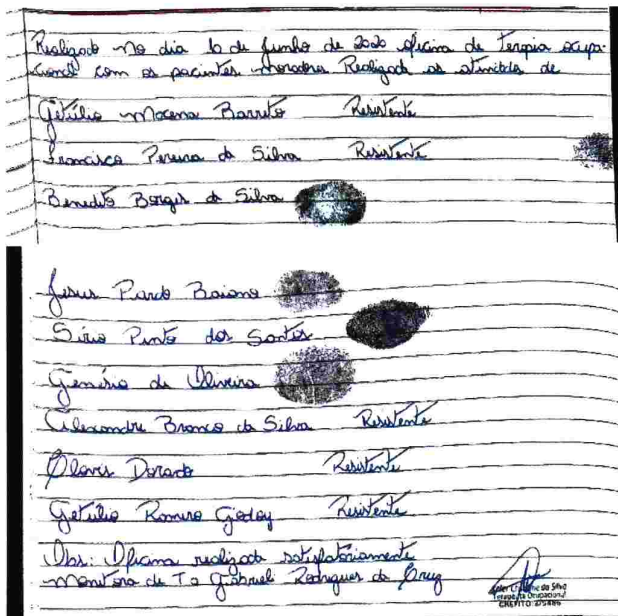 Realizado no dia 10 de junho de 2020 oficina de terapia ocupa-
cional com os pacientes moradores Realizado as atividades de
Getúlio Macena Barreto Resistente
Francisco Pereira da Silva Resistente
Benedito Borges da Silva
Jesus Pardo Baiano
Sírio Pinto dos Santos
Genésio de Oliveira
Alexandre Branco da Silva Resistente
Clovis Dorado Resistente
Getúlio Romero Godoy Resistente
Obs: Oficina realizada satisfatoriamente
Monitora de T.o Gabriel Rodrigues da Cruz
da Silva
Terapeuta Ocupacional
CREFITO